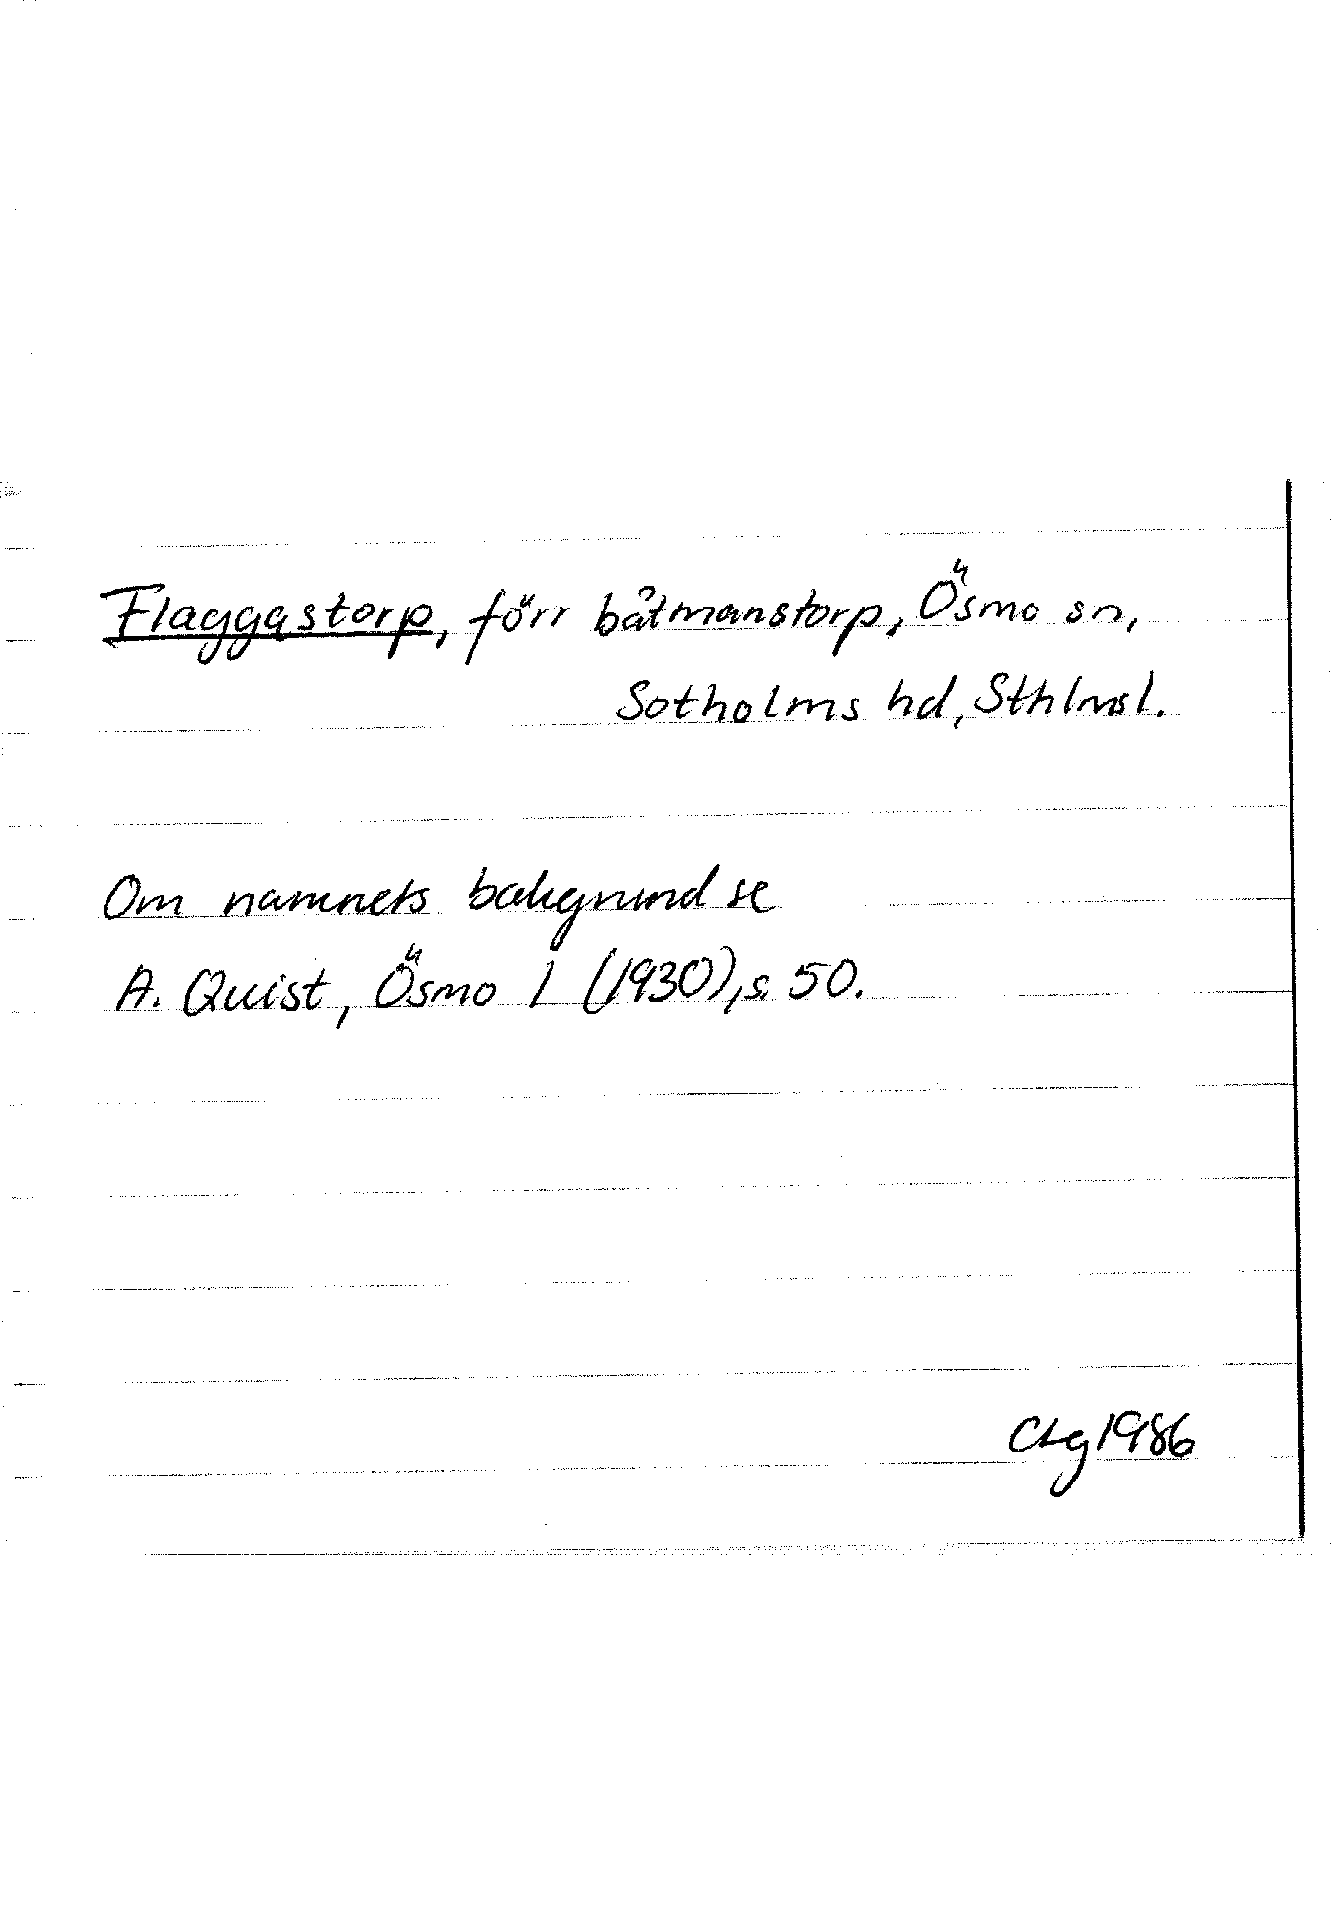 Flaggastorp, förr båtmanstorp, Ösmo sn,
Sotholms hd, Sthlmsl.
Om namnets bakgrund se
A. Quist, Ösmo 1 (1930), s. 50.
CLg 1986